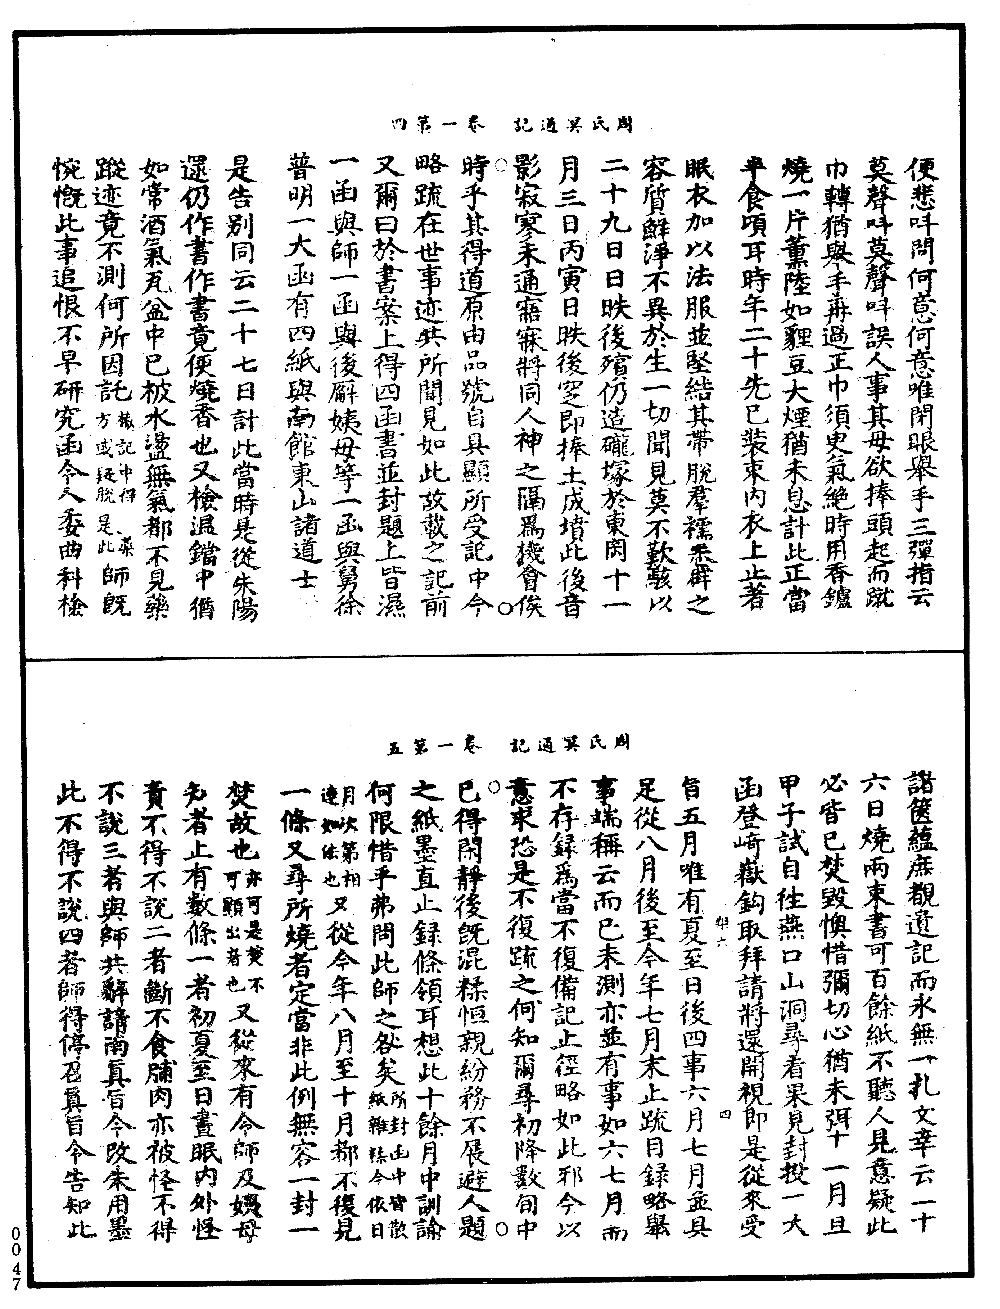 周氏冥通記　卷一第四
便悲叫問何意何意唯閉眼舉手三彈指云
莫聲叫莫聲叫誤人事其母欲捧頭起而蹴
巾轉猶舉手再過正巾須臾氣絕時用香鑪
燒一片薰陸如貍豆大煙猶未息計此正當
半食頃耳時年二十先已裝束內衣上止著
眠衣加以法服並堅結其帶脫羣襦枀辟之
容質鮮淨不異於生一切聞見莫不歎駭以
二十九日日昳後殯仍造礲塚於東岡十一
月三日丙寅日昳後窆即捧土成墳此後音
影寂寥未通寤寐將同人神之隔為機會俟
時乎其得道原由品號自具顯所受記中今
略疏在世事迹共所聞見如此故載之記前
又爾曰於書案上得四函書並封題上皆濕
一函與師一函與後廨姨母等一函與舅徐
普明一大函有四紙與南館東山諸道士
是告別同云二十七日計此當時是從朱陽
還仍作書作書竟便燒香也又檢溫鐺中猶
如常酒氣瓦盆中已被水盪無氣都不見藥
蹤迹竟不測何所因託檢記中得藥方或疑脫是此師既
惋慨此事追恨不早研究函令人委曲科檢
周氏冥通記　卷一第五
諸篋蘊庶覩遺記而永無一札文幸云一十
六日燒兩束書可百餘紙不聽人見意疑此
必皆已焚毀懊惜彌切心猶未弭十一月旦
甲子試自往燕口山洞尋看果見封投一大
函登崎嶽鈎取拜請將還開視即是從來受
旨五月唯有夏至日後四事六月七月並具
足從八月後至今年七月末止疏目錄略舉
事端稱云而已未測亦並有事如六七月而
不存錄為當不復備記止徑略如此邪今以
意求恐是不復疏之何知爾尋初降數旬中
已得閑靜後既混糅恒親紛務不展避人題
之紙墨直止錄條領耳想此十餘月中訓諭
何限惜乎弗問此師之咎矣所封函中皆散紙雜糅今依日月次第相連如法也又從今年八月至十月都不復見
一條又尋所燒者定當非此例無容一封一
焚故也亦可是焚不可顯出者也又從來有令師及姨母
知者上有數條一者初夏至日晝眠內外怪
責不得不說二者斷不食脯肉亦被怪不得
不說三者與師共辭請南真旨令改朱用墨
此不得不說四者師得停召真旨令告知此
0047